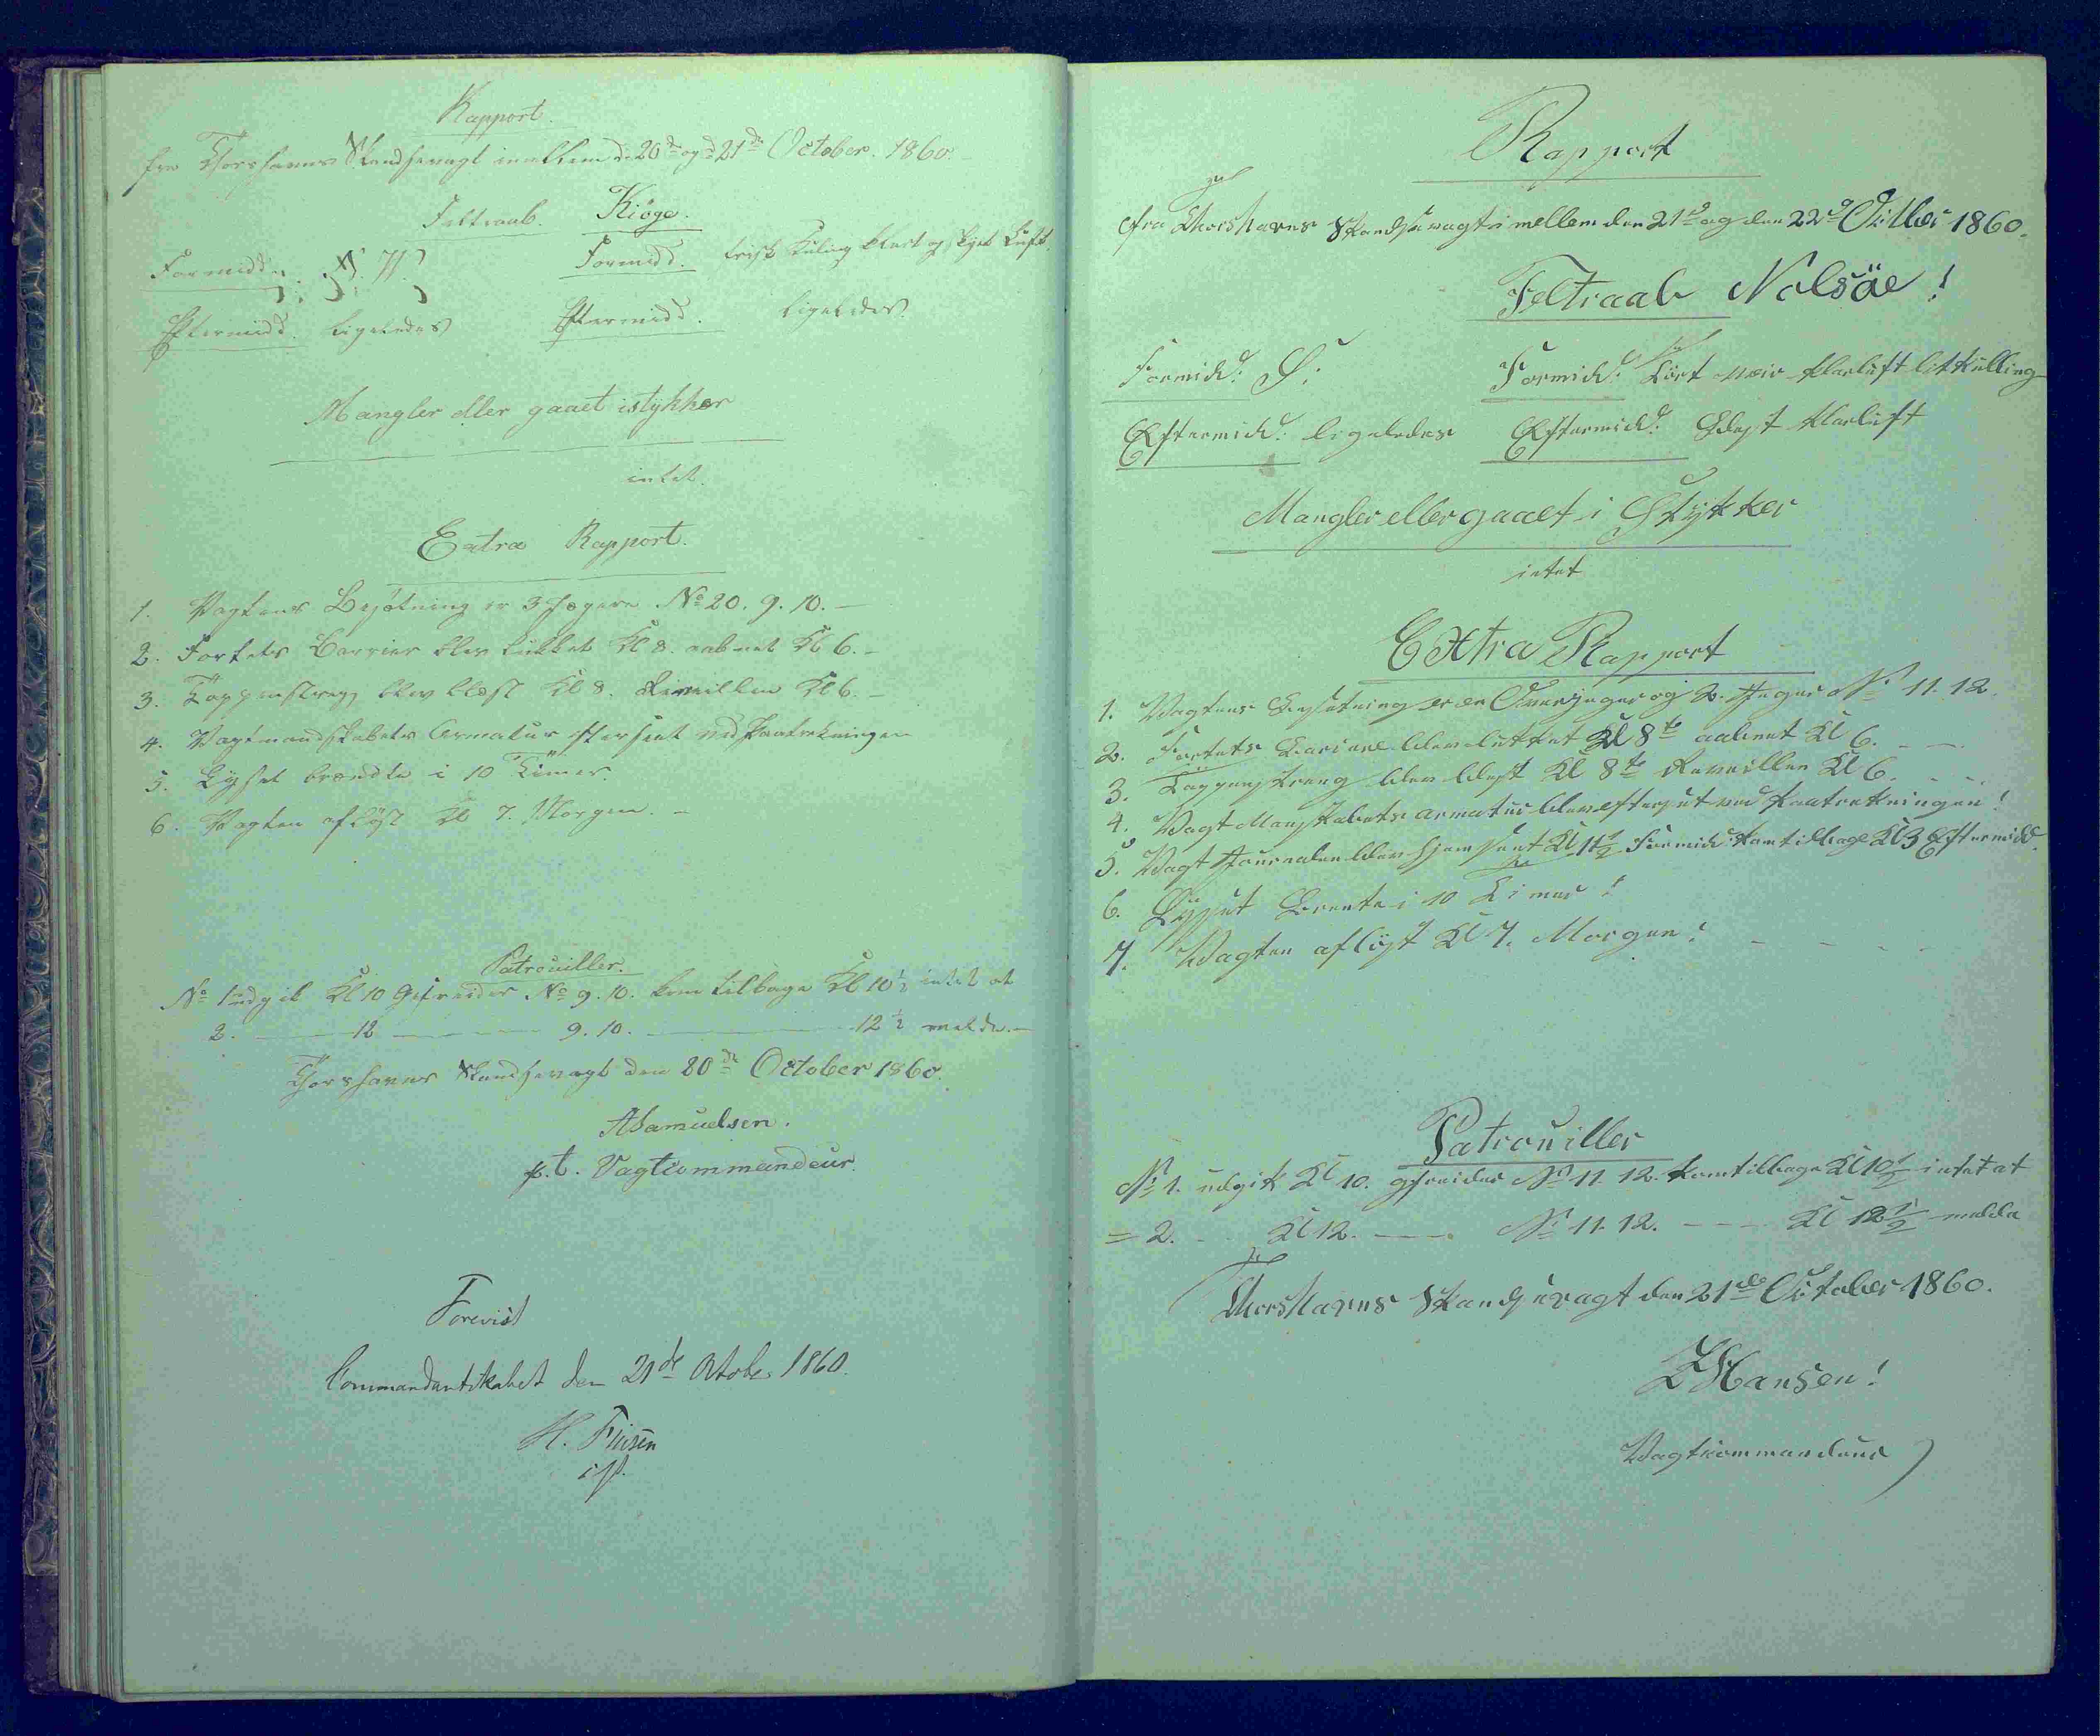 Rapport.
fra Thorshavns Skandsevagt imellem d: 20de og d: 21de October 1860.
Feltraab. Kiöge.
Formidd: N. V. Formidd. frisk Kuling klart og skyet Luft.
Eftermidd. ligeledes Eftermidd. ligeledes.
Mangler eller gaaet istykker
intet.
Extra Rapport.
1. Vagtens Besætning er 3 Jægere No 20. 9. 10. –
2. Fortets Barrier blev lukket Kl 8. aabnet Kl 6. –
3. Tappenstreg blev blæst Kl 8. Reveillen Kl 6. –
4. Vagtmandskabets Armatur efterseet ved Paatrækningen
5. Lyset brændte i 10 Timer.
6. Vagten aflöst Kl 7. Morgen. –
Patrouiller.
No 1 udgik Kl 10 Gefreider No 9. 10. kom tilbage Kl 10½ intet at
2. — 12 — 9. 10. — 12½ melde. –
Thorshavns Skandsevagt den 20de October 1860.
ASamuelsen.
p.t. Vagtcommandeur.
Forevist
Commandantskabet den 21de October 1860.
H. Finsen
Rapport
fra Thorshavns Skandsevagt imellem den 21de og den 22de October 1860.
Feltraab Nolsöe!
Formidd: S: Formidd: Tört Veir klarluft lit Kulling
Eftermidd: ligeledes Eftermidd: klarluft
Mangler eller gaaet i Stykker
intet
Extra Rapport
1. Vagtens Besetning er en Overjeger og 2. Jeger No 11. 12.
2. Fortets Bariere blev lukket Kl 8te aabnet Kl 6. – –
3. Tappenstreg blev blest Kl 8te Reveillen Kl 6. – – –
4. Vagt Manskabets armatur blev efterset ved Paatrekningen!
5. Vagt Journalen blev hjemsent Kl 11½ Formidd: kom tilbage Kl 3 Eftermidd.
6. Lyset Brente i 10 Timer!
7. Vagten aflöst Kl 7. Morgen! – – – –
Patrouiller
No 1. udgik Kl 10. gefreider No 11. 12. kom tilbage Kl 10½ intet at
= 2. – – Kl 12. — No 11. 12. — Kl 12½ melde
Thorshavns Skandsevagt den 21de October 1860.
Hansen!
Vagtkommandeur